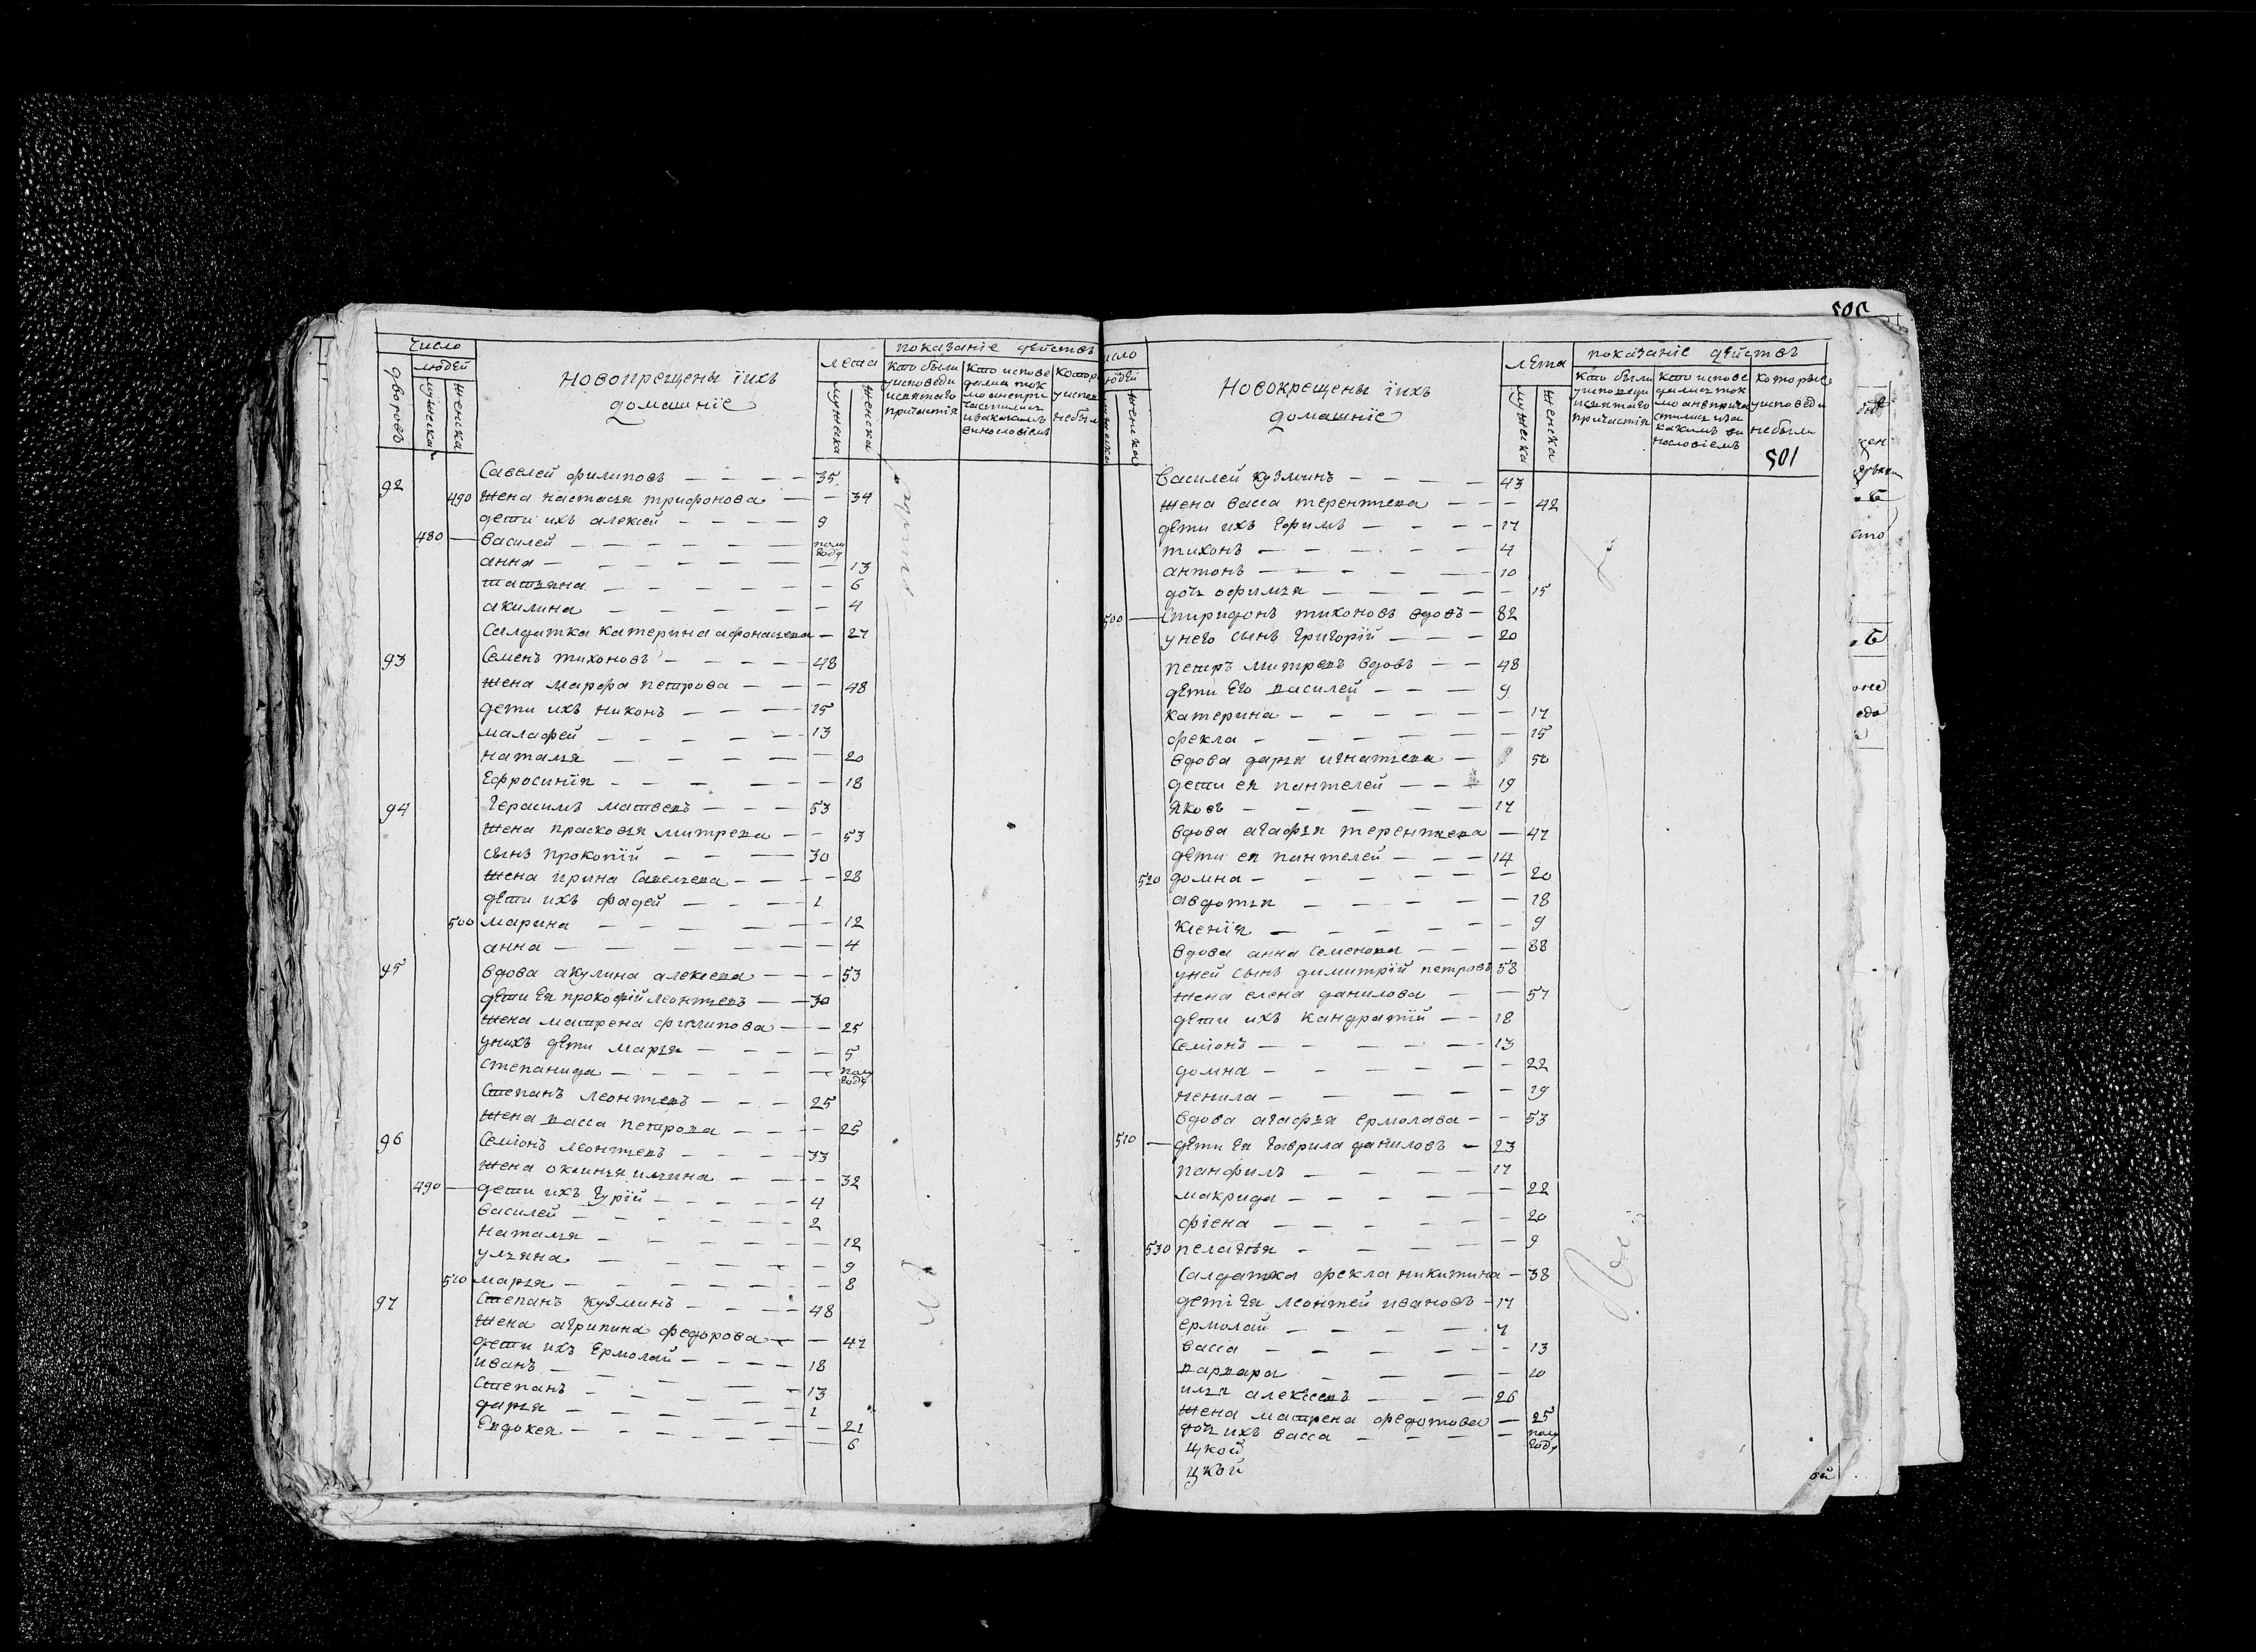 число
показаніе действъ
людей
дворовъ
мужеска
женска
Новокрещены їихъ
домашніе
лета
мужеска
женска
кто были
уисповеди
исвятаго
причастія
кто испове
дался ток
мо анепри
частился
изакакимъ
винословіемъ
котор
уиспов
небыл
Савелей филиповъ — — — — 35
92 490 жена настасья трифонова — — 34
дети ихъ алексей — — — — 9
480 — василей — — — — — полу году
анна — — — — — — 13
татьяна — — — — — 6
акилина — — — — — 4
Салдатка катерина афонасьева — 27
93 Семенъ тихоновъ — — — — 48
жена марфа петрова — — — 48
дети ихъ никонъ — — — 15
малафей — — — — — 13
наталья — — — — — 20
Ефросинїя — — — — — 18
94 Герасимъ матвевъ — — — 53
жена прасковья митрева — — 53
сынъ прокопїй — — — 30
жена ирина Савельева — — — — 28
дети ихъ фадей — — — 1
500 марина — — — — — — 12
анна — — — — — — 4
95 вдова акулина алексева — — — 53
дети Ея прокофїй леонтьевъ — — 30
жена матрена филипова — — 25
унихъ дети марья — — — — 5
степанида — — — — — — полу году
Степанъ леонтьевъ — — — 25
жена васса петрова — — — — 25
96 Семїонъ леонтьевъ — — — — 33
жена оксинья ильина — — — — 32
490 — дети ихъ Гурїй — — — — 4
василей — — — — — — 2
наталья — — — — — — 12
ульяна — — — — — — 9
510 марья — — — — — — 8
97 Степанъ кузминъ — — — — 48
жена агрипина федорова — — 47
дети ихъ Ермолай — — — — 18
иванъ — — — — — 13
Степанъ — — — — — 1
дарья — — — — — — 21
Евдокея — — — — — — 6
505
число
людей
мужеска
женска
Новокрещены їихъ
домашніе
лета
мужеска
женска
показаніе действъ
кто были
уисповеди
исвятаго
причастія
кто испове
дался ток
мо анепричa
стился иза
какимъ ви
нословіемъ
которые
уисповеди
небыли
501
василей кузминъ — — — — 43
жена васса терентьева — — — 42
дети ихъ Ефимъ — — — 17
тихонъ — — — — — 4
антонъ — — — — — 10
дочь офимья — — — — — 15
500 — Спиридонъ тихоновъ вдовъ — 82
унего сынъ григорїй — — — 20
петръ митревъ вдовъ — — 48
дети Его василей — — — 9
катерина — — — — — — 17
фекла — — — — — — 15
вдова дарья игнатьева — 50
дети ея пантелей — — — 19
яковъ — — — — — — 17
вдова агафья терентьева — 47
дети ея пантелей — — — 14
520 домна — — — — — — 20
авдотья — — — — — 18
ксенїя — — — — — — 9
вдова анна Семенова — — — 88
уней сынъ димитрїй петровъ 58
жена елена данилова — — 57
дети ихъ кандратїй — — 18
Семїонъ — — — — — 13
домна — — — — — — 22
ненила — — — — — — 19
вдова агафья ермолава — — 53
510 — дети Ея Гаврила даниловъ — 23
панфилъ — — — — — 17
макрида — — — — — — 22
фїена — — — — — — 20
530 пелагѣя — — — — — 9
Салдатка фекла никитина — 38
детї Ея леонтей ивановъ — 17
ермолай — — — — — 7
васса — — — — — — 13
варвара — — — — — — 10
илья алексеевъ — — — 26
жена матрена федотова — 25
дочь ихъ васса — — — — полу году
цкой
цкой
ой